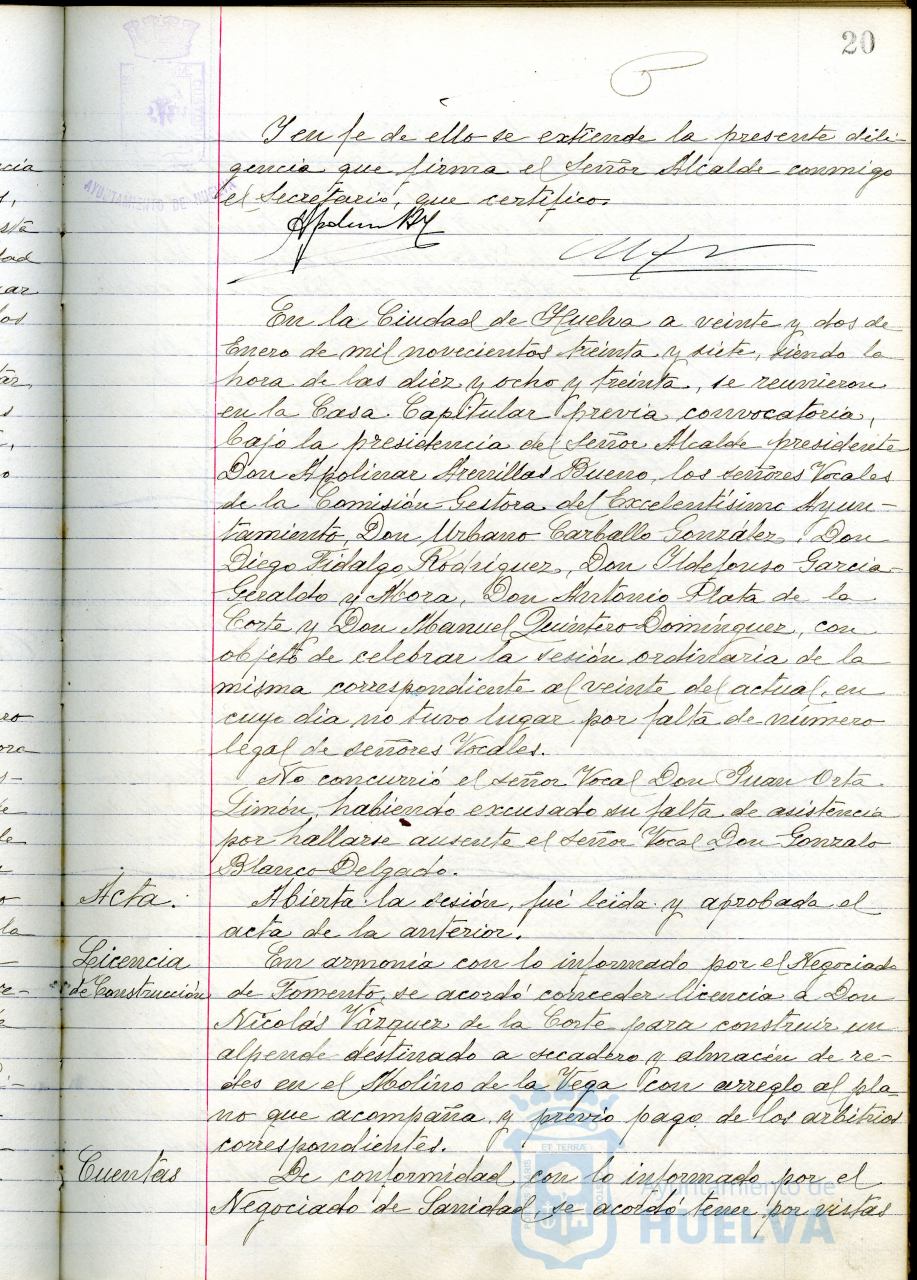 20
Y en fe de ello se extiende la presente dili-
gencia que firma el Señor Alcalde conmigo
el Secretario, que certifico.
AYUNTAMIENTO DE HUELVA
En la Ciudad de Huelva a veinte y dos de
Enero de mil novecientos treinta y siete, siendo la
hora de las diéz y ocho y treinta, se reunieron
en la Casa Capitular previa convocatoria,
bajo la presidencia del Señor Alcalde presidente
Don Apolinar Arenillas Bueno, los señores Vocales
de la Comisión Gestora del Excelentísimo Ayun-
tamiento, Don Urbano Carballo González, Don
Diego Fidalgo Rodríguez, Don Ildefonso Garcia-
Geraldo y Mora, Don Antonio Plata de la
Corte y Don Manuel Quintero Domínguez, con
objeto de celebrar la sesión ordinaria de la
misma correspondiente al veinte del actual, en
cuyo dia no tuvo lugar por falta de número
legal de señores Vocales.
No concurrió el señor Vocal Don Juan Orta
Limón, habiendo excusado su falta de asistencia
por hallarse ausente el señor Vocal Don Gonzalo
Blanco Delgado.
Acta. Abierta la sesión, fué leida y aprobada el
acta de la anterior.
Licencia En armonía con lo informado por el Negociado
de Construcción de Fomento, se acordó conceder licencia a Don
Nicolás Vázquez de la Corte para construir un
alpende destinado a secadero y almacén de re-
des en el Molino de la Vega con arreglo al pla-
no que acompaña y previo pago de los arbitrios
correspondientes.
Cuentas De conformidad con lo informado por el
Negociado de Sanidad, se acordó tener por vistas
Ayuntamiento de
HUELVA